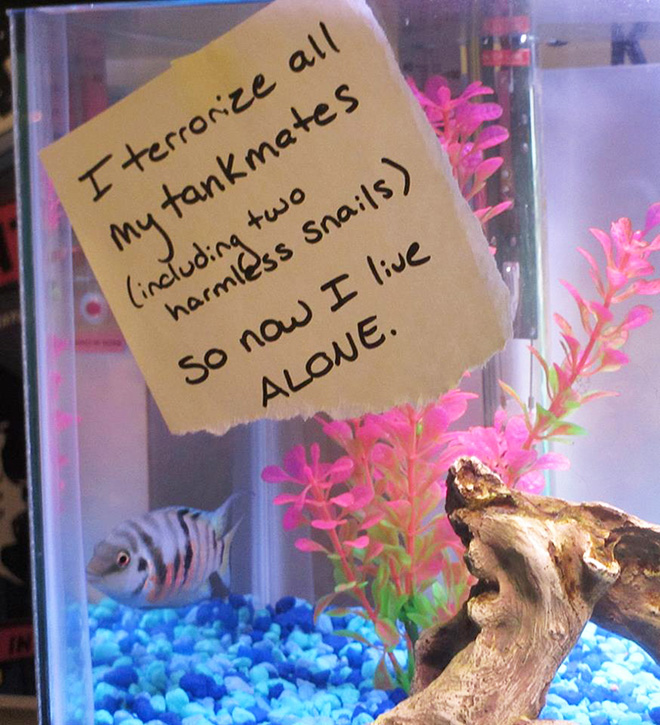 I terrorize all
my tankmates
(including two
harmless snails)
so now I live
ALONE.